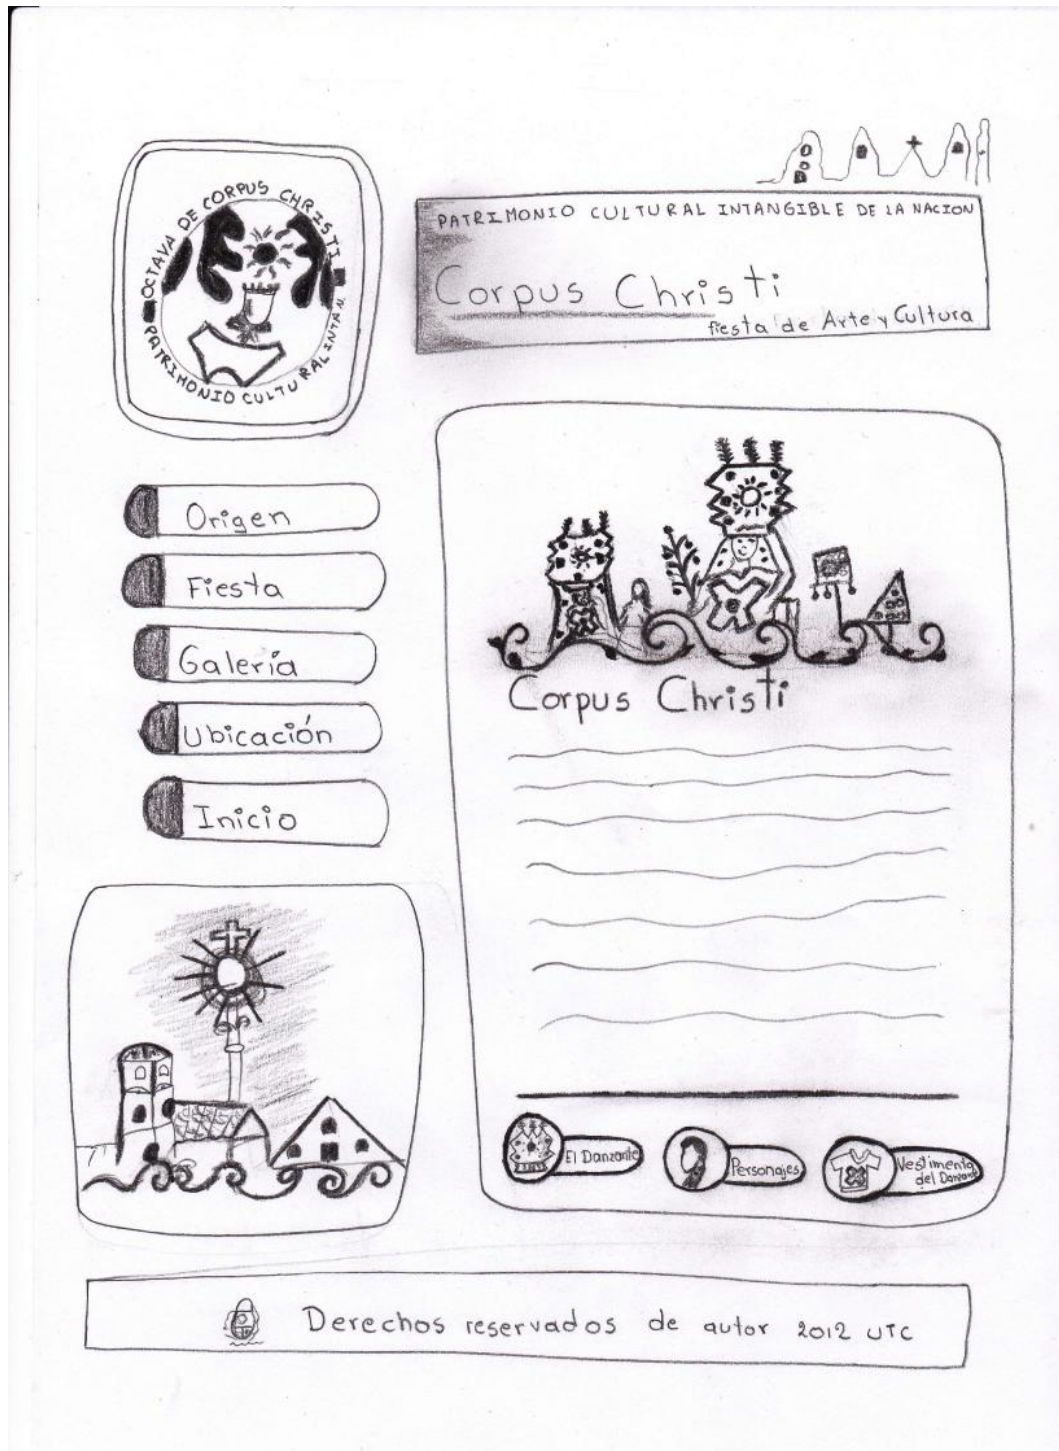 OCTAVA DE CORPUS CHRISTI
PATRIMONIO CULTURAL INTAN.
PATRIMONIO CULTURAL INTANGIBLE DE LA NACION
Corpus Christi
fiesta de Arte y Cultura
Origen
Fiesta
Galería
Ubicación
Inicio
Corpus Christi
El Danzante
Personajes
Vestimenta
del Danzante
Derechos reservados de autor 2012 UTC